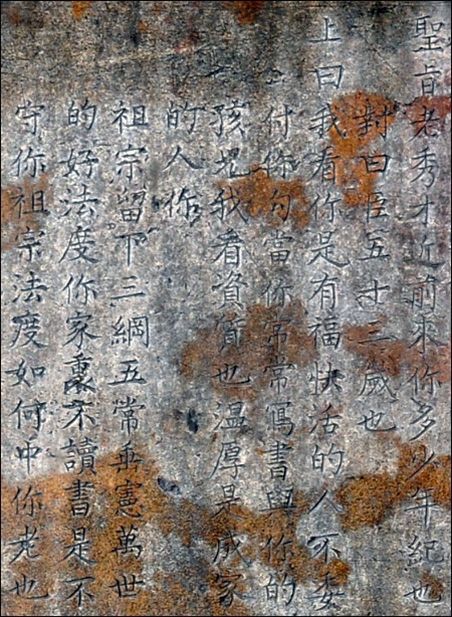 聖旨老秀才近前來你多少年紀也
對曰臣五十三歲也
上曰我看你是有福快活的人不委
付你勾當你常常寫書與你的
孩兒我看資質也温厚是成家
的人你
祖宗留下三綱五常垂憲萬世
的好法度你家裏不讀書是不
守你祖宗法度如何中你老也